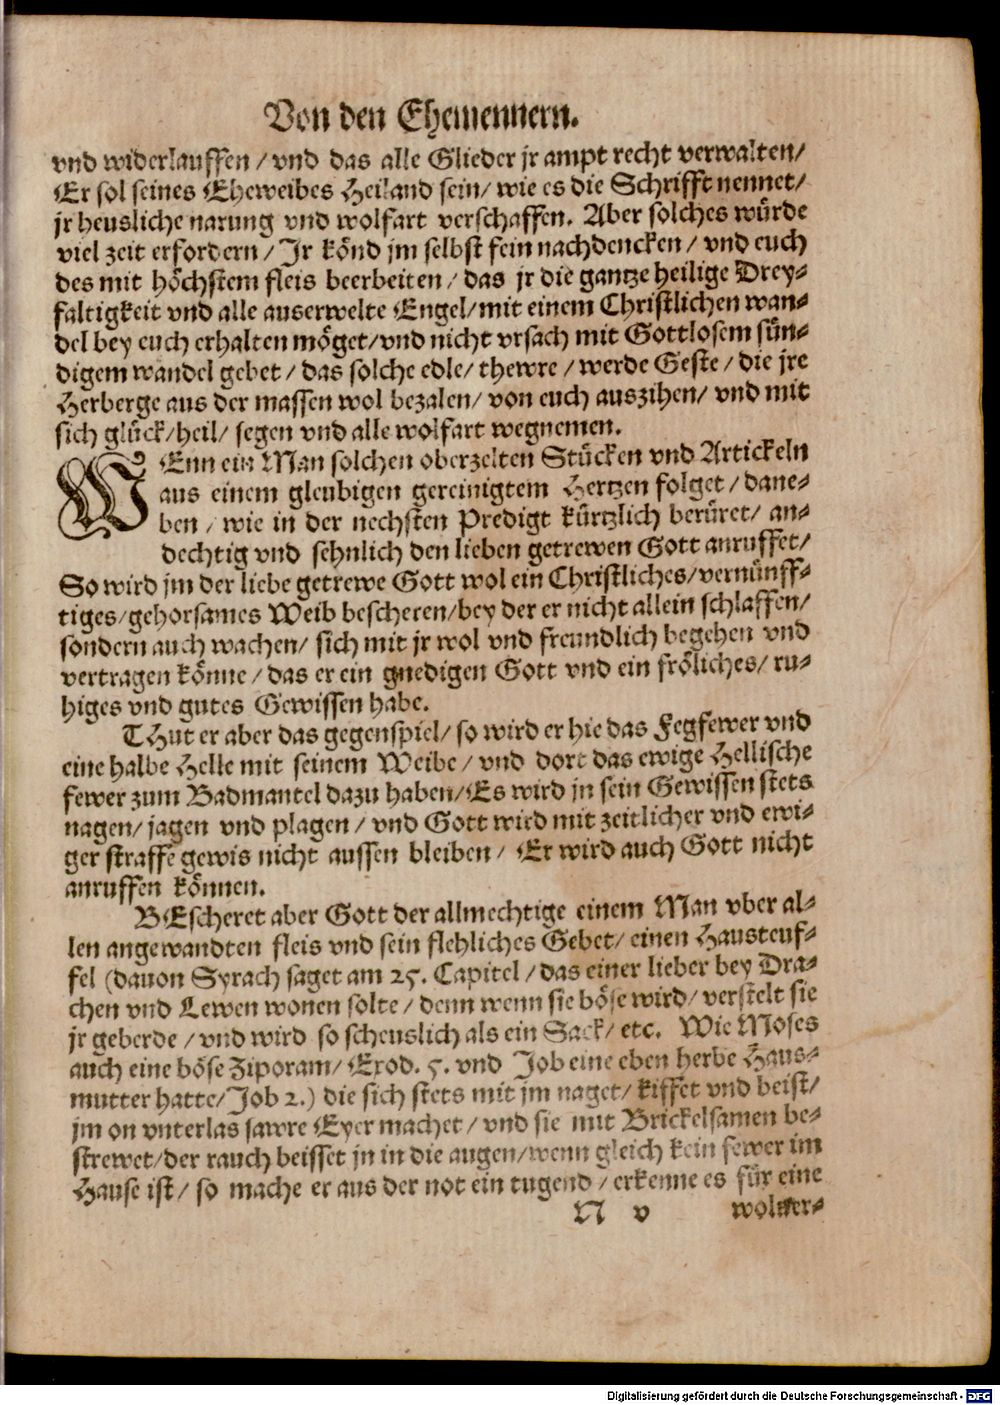 Von den Ehemennern.
vnd widerlauffen / vnd das alle Glieder jr ampt recht verwalten /
Er sol seines Eheweibes Heiland sein / wie es die Schrifft nennet /
jr heusliche narung vnd wolfart verschaffen. Aber solches würde
viel zeit erfordern / Jr könd jm selbst fein nachdencken / vnd euch
des mit höchstem fleis beerbeiten / das jr die gantze heilige Drey-
faltigkeit vnd alle auserwelte Engel / mit einem Christlichen wan-
del bey euch erhalten möget / vnd nicht vrsach mit Gottlosem sün-
digem wandel gebet / das solche edle / thewre / werde Geste / die jre
Herberge aus der massen wol bezalen / von euch auszihen / vnd mit
sich glück / heil / segen vnd alle wolfart wegnemen.
WEnn ein Man solchen oberzelten Stücken vnd Artickeln
aus einem gleubigen gereinigtem Hertzen folget / dane-
ben / wie in der nechsten Predigt kürtzlich berüret / an-
dechtig vnd sehnlich den lieben getrewen Gott anruffet /
So wird jm der liebe getrewe Gott wol ein Christliches / vernünff-
tiges / gehorsames Weib bescheren / bey der er nicht allein schlaffen /
sondern auch wachen / sich mit jr wol vnd freundlich begehen vnd
vertragen könne / das er ein gnedigen Gott vnd ein fröliches / ru-
higes vnd gutes Gewissen habe.
THut er aber das gegenspiel / so wird er hie das Fegfewer vnd
eine halbe Helle mit seinem Weibe / vnd dort das ewige Hellische
fewer zum Badmantel dazu haben / Es wird jn sein Gewissen stets
nagen / jagen vnd plagen / vnd Gott wird mit zeitlicher vnd ewi-
ger straffe gewis nicht aussen bleiben / Er wird auch Gott nicht
anruffen können.
BEscheret aber Gott der allmechtige einem Man vber al-
len angewandten fleis vnd sein flehliches Gebet / einen Hausteuf-
fel (dauon Syrach saget am 25. Capitel / das einer lieber bey Dra-
chen vnd Lewen wonen solte / denn wenn sie böse wird / verstelt sie
jr geberde / vnd wird so scheuslich als ein Sack / etc. Wie Moses
auch eine böse Ziporam / Exod. 5. vnd Job eine eben herbe Haus-
mutter hatte / Job 2.) die sich stets mit jm naget / kiffet vnd beist /
jm on vnterlas sawre Eyer machet / vnd sie mit Brickelsamen be-
strewet / der rauch beisset jn in die augen / wenn gleich kein fewer im
Hause ist / so mache er aus der not ein tugend / erkenne es für eine
N v wolver-
Digitalisierung gefördert durch die Deutsche Forschungsgemeinschaft - DFG